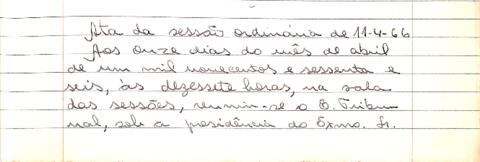 Ata da sessão ordinária de 11-4-66
Aos onze dias do mês de abril
de um mil novecentos e sessenta e
seis, às dezessete horas, na sala
das sessões, reuniu-se o E. Tribu
nal, sob a presidência do Exmo. Sr.